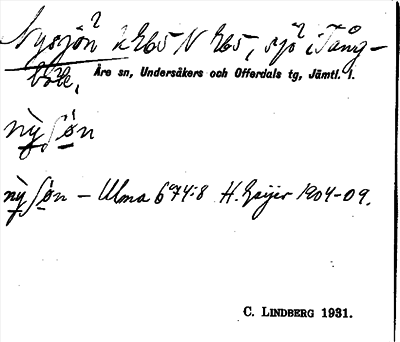 Nysjön 2 k765 N 765, sjö i Tång-
böle, Åre sn, Undersåkers och Offerdals tg, Jämtl. l.
nỳʃø̀n
nỳʃø̀n – Ulma 674:8 H. Geijer 1904-09.
C. LINDBERG 1931.